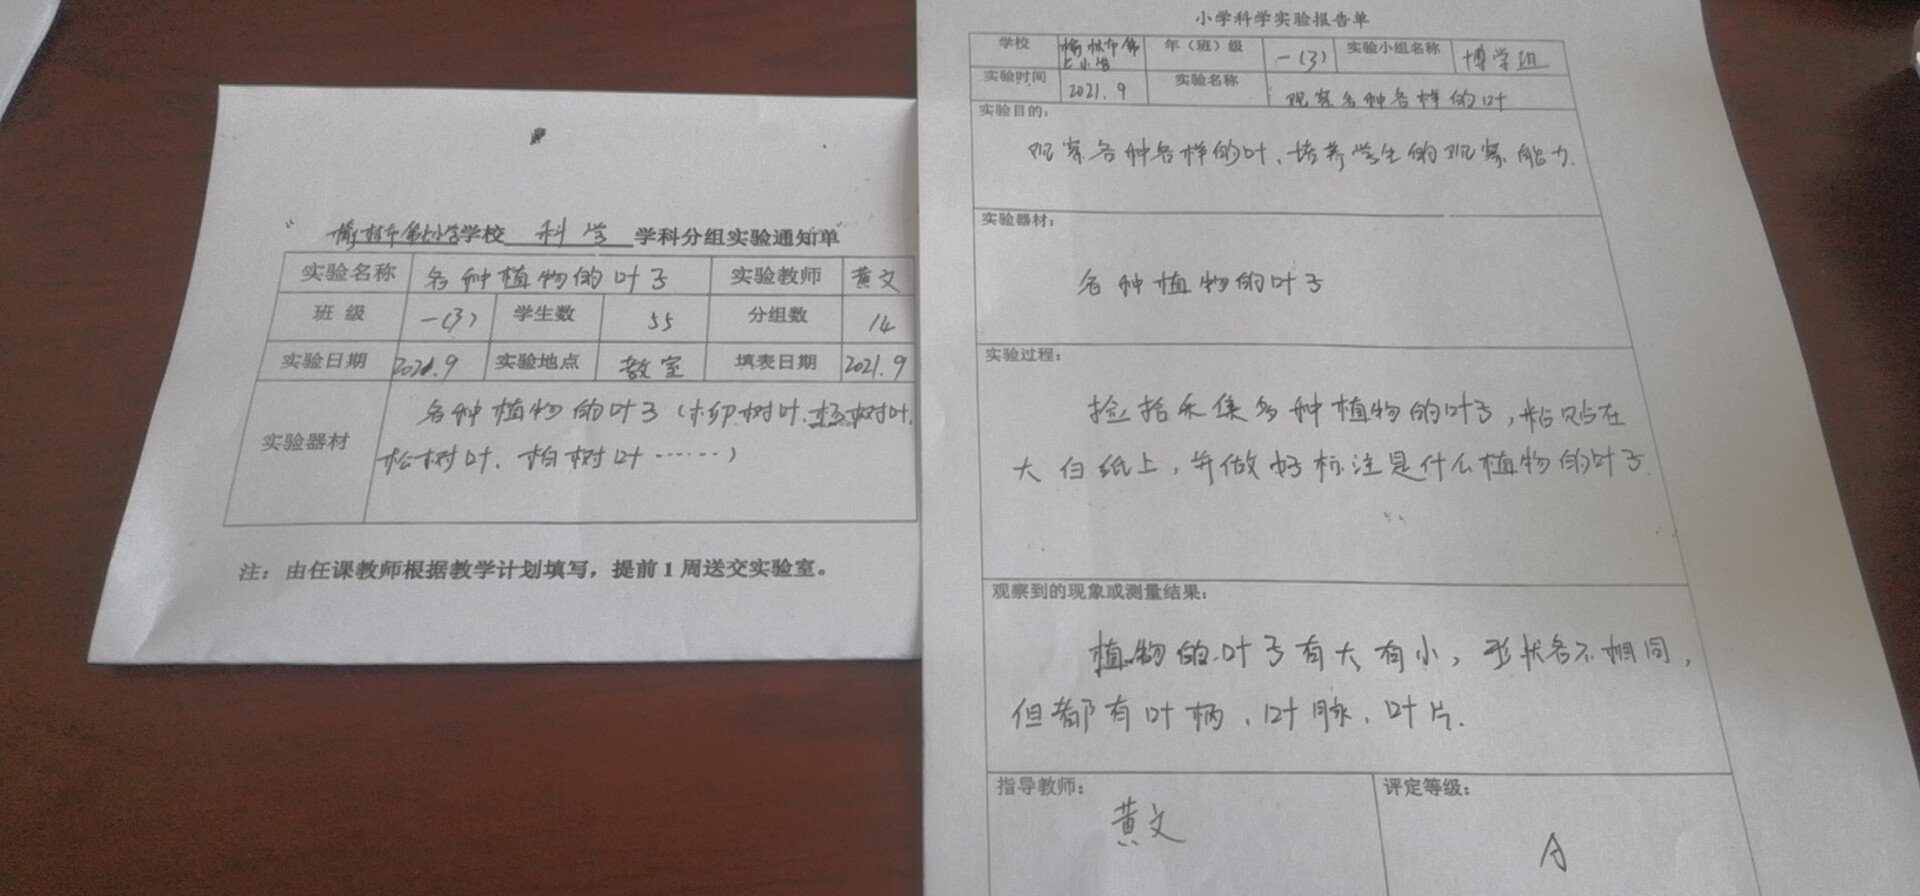 “榆林市第七小学学校 科学 学科分组实验通知单”
实验名称 各种植物的叶子 实验教师 黄文
班级 一(3) 学生数 55 分组数 14
实验日期 2021.9 实验地点 教室 填表日期 2021.9
实验器材 各种植物的叶子(柳树叶、杨树叶、
松树叶、柏树叶……)
注：由任课教师根据教学计划填写，提前1周送交实验室。
小学科学实验报告单
学校 榆林市第七小学 年（班）级 一(3) 实验小组名称 博学组
实验时间 2021.9 实验名称 观察各种各样的叶
实验目的：
观察各种各样的叶、培养学生的观察能力.
实验器材：
各种植物的叶子
实验过程：
捡拾采集多种植物的叶子，粘贴在
大白纸上，并做好标注是什么植物的叶子.
观察到的现象或测量结果：
植物的叶子有大有小，形状各不相同，
但都有叶柄、叶脉、叶片.
指导教师：
黄文
评定等级：
A